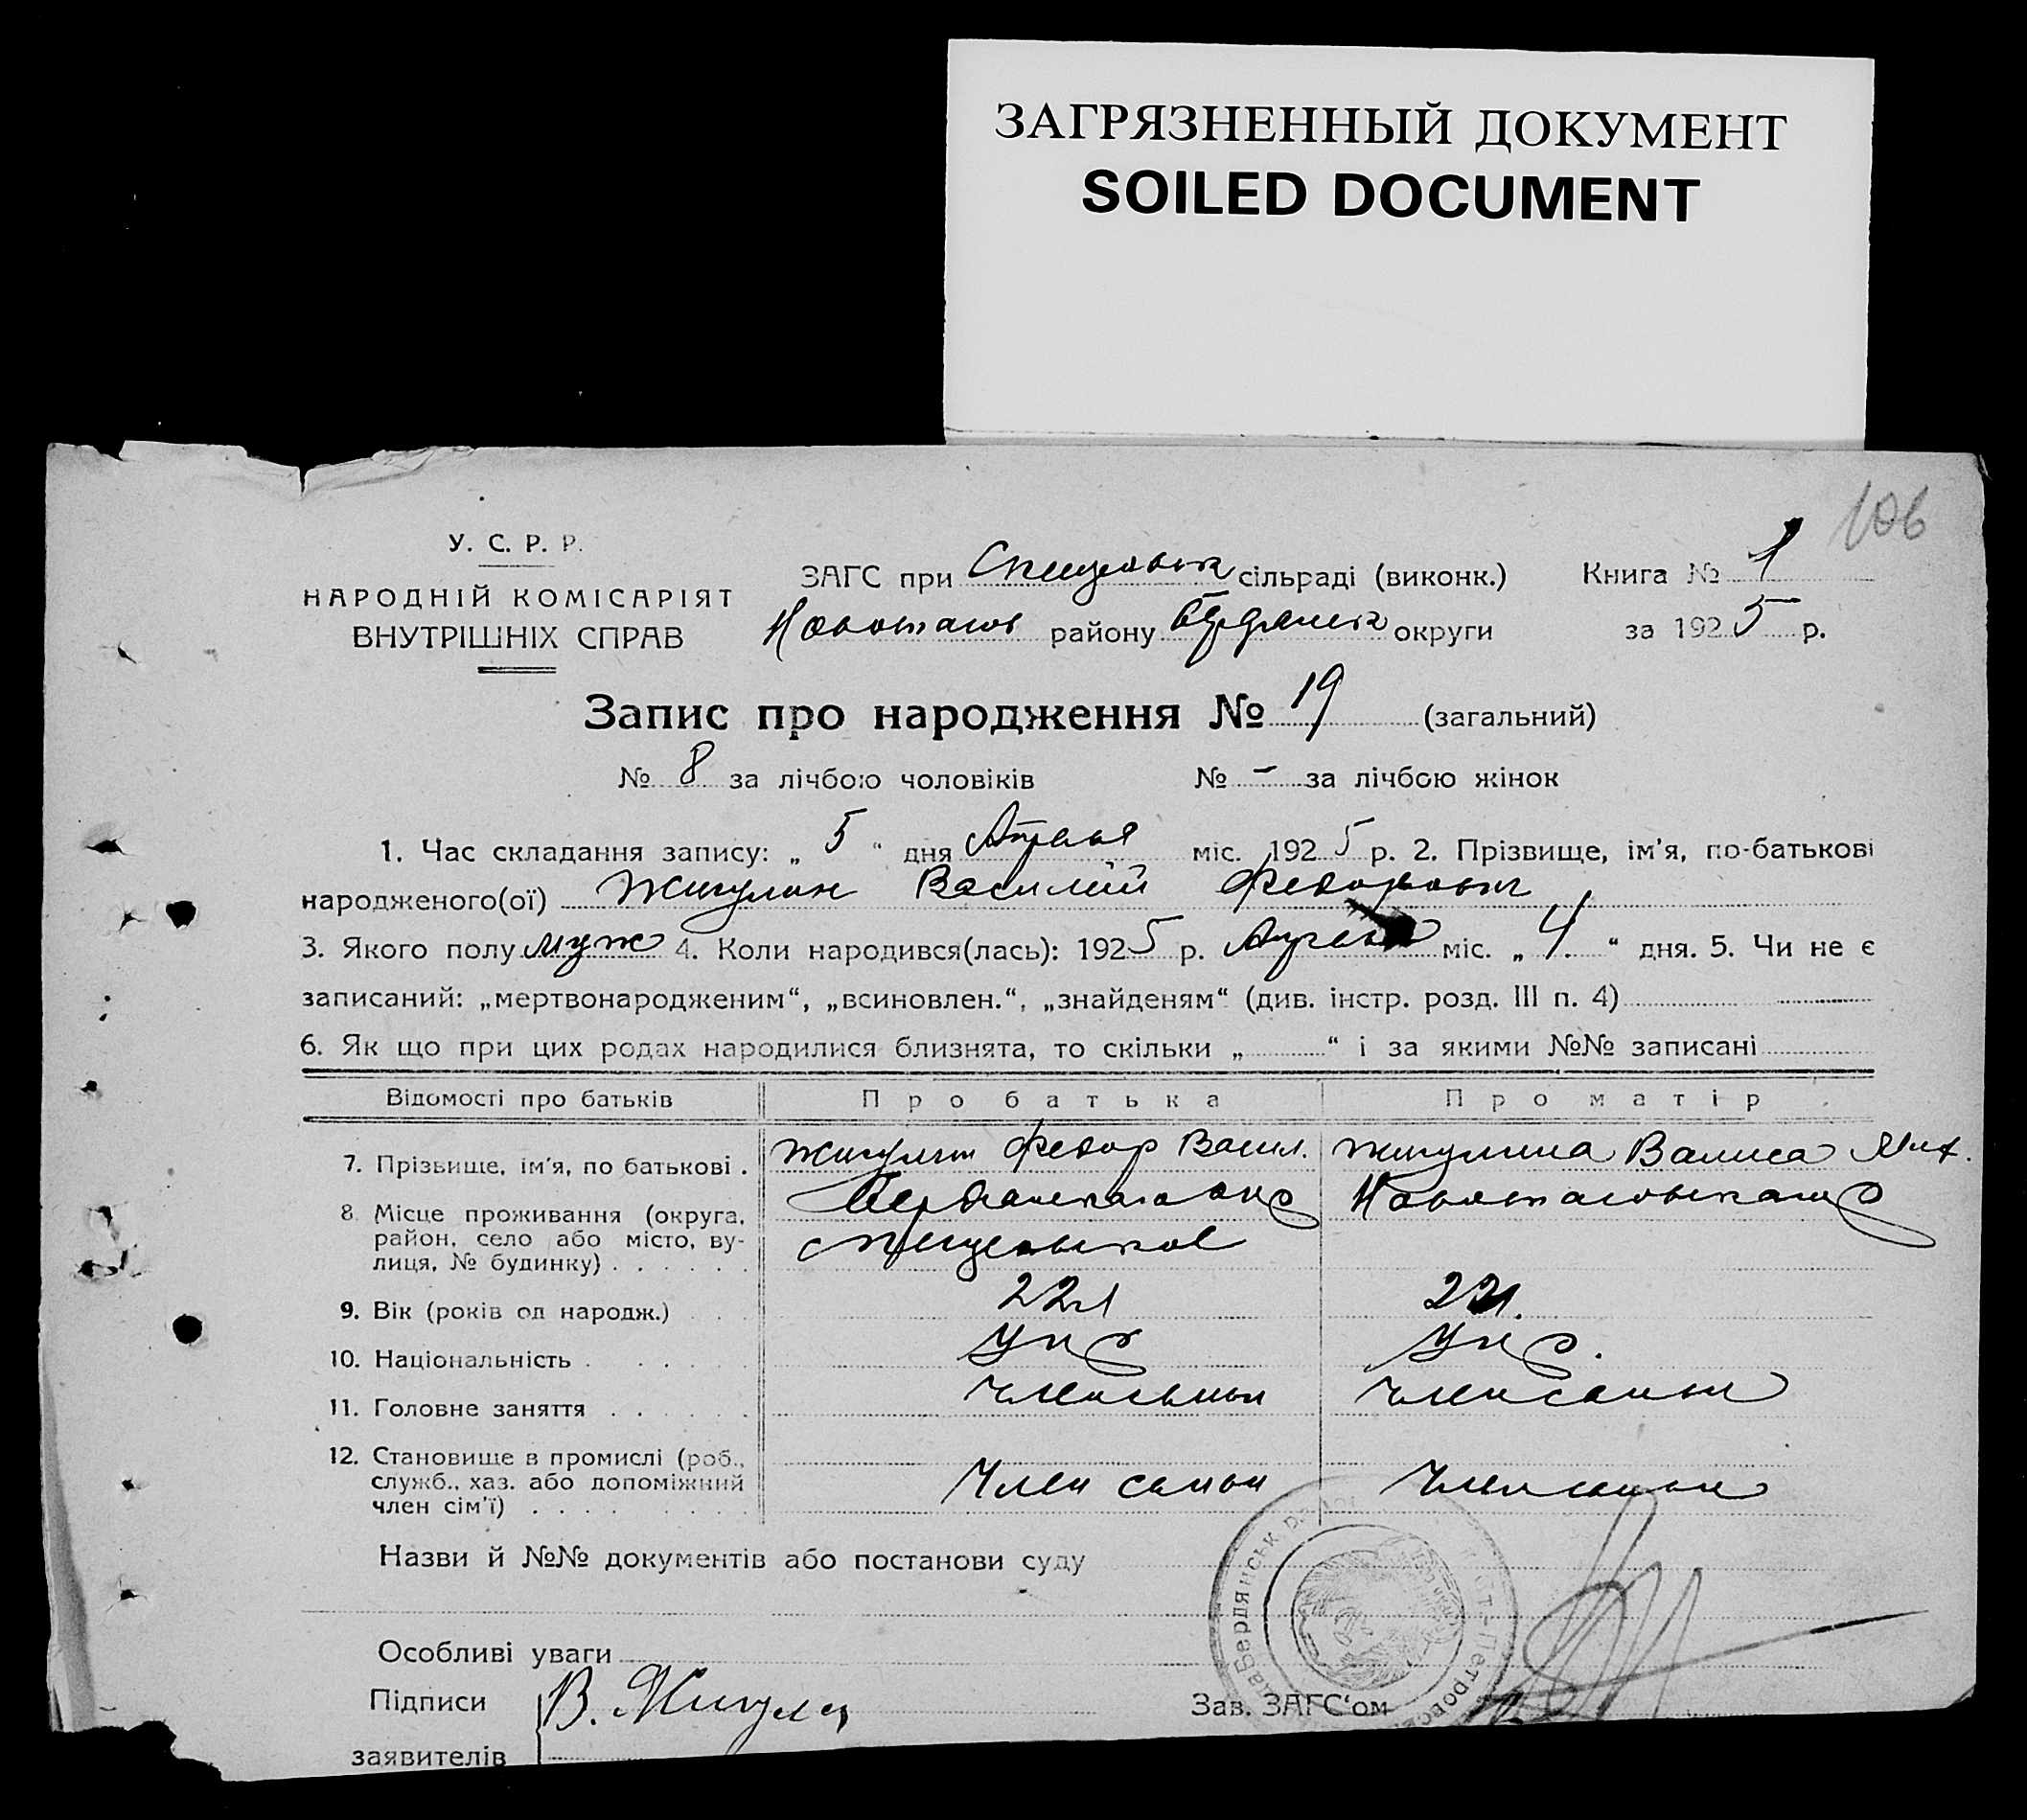 ЗАГРЯЗНЕННЫЙ ДОКУМЕНТ
SOILED DOCUMENT
106
У. С. Р. Р.
НАРОДНІЙ КОМІСАРІЯТ
ВНУТРІШНІХ СПРАВ
ЗАГС при сільраді (виконк.) Книга № 1
району округи за 1925 р.
Запис про народження № 19 (загальний)
№ 8 за лічбою чоловіків № - за лічбою жінок
1. Час складання запису: „ 5 “ дня Апреля міс. 1925 р. 2. Прізвище, ім'я, по-батькові
народженого(ої) Жигулин Василий Федорович
3. Якого полу муж 4. Коли народився(лась): 1925 р. Апреля міс. „ 4. “ дня. 5. Чи не є
записаний: „мертвонародженим“, „всиновлен.“, „знайденям“ (див. інстр. розд. III п. 4)
6. Як що при цих родах народилися близнята, то скільки „ “ і за якими №№ записані
Відомості про батьків Про батька Про матір
7. Прізвище, ім'я, по батькові . Жигулин Федор Васил. Жигулина
8. Місце проживання (округа,
район, село або місто, ву-
лиця, № будинку) . . . . . .
9. Вік (років од народж.) . . . 22л 22л.
10. Національність . . . . . Укр Укр.
11. Головне заняття . . . . . .
12. Становище в промислі (роб.,
служб., хаз. або допоміжний
член сім'ї) . . . . . . . . Член семьи Член семьи
Назви й №№ документів або постанови суду
Особливі уваги
Підписи В. Жигулин Зав. ЗАГС'ом
заявителів